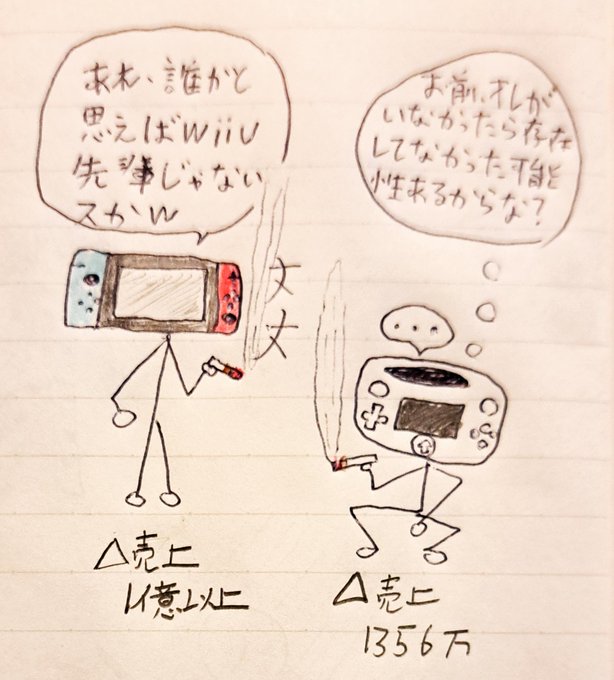 あれ、誰かと
思えばwiiU
先輩じゃない
スかw
お前、オレが
いなかったら存在
してなかった可能
性あるからな?
...
△売上
1.4億以上
△売上
1356万